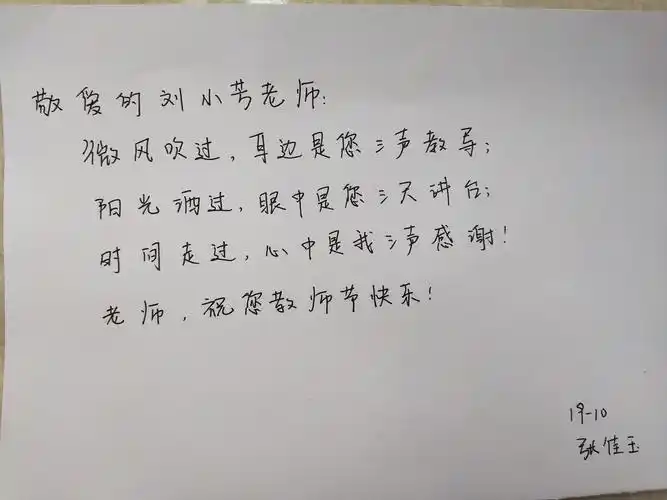 敬爱的刘小芳老师:
微风吹过,耳边是您三声教导;
阳光洒过,眼中是您三尺讲台;
时间走过,心中是我三声感谢!
老师,祝您教师节快乐!
19-10
张佳玉